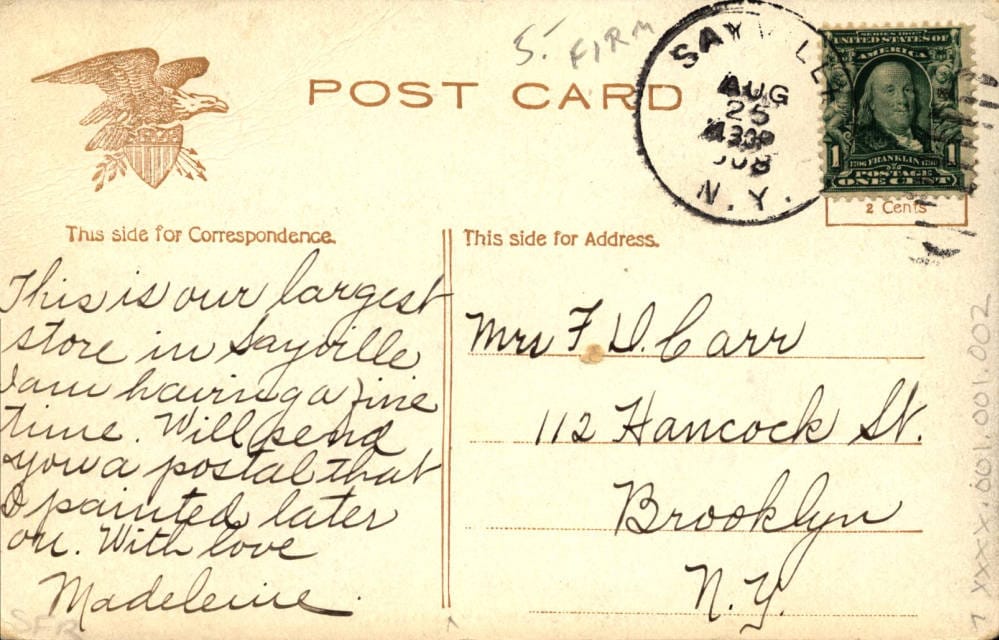 5. FIRM
POST CARD
SAYVILLE
AUG
25
430P
'08
N.Y.
SERIES 1902
UNITED STATES OF
AMERICA
1 1
1706 FRANKLIN 1790
POSTAGE
ONE CENT
2 Cents
This side for Correspondence.
This is our largest
store in Sayville
I am having a fine
time. Will send
you a postal that
I painted later
on. With love
Madeleine.
This side for Address.
Mrs F. D. Carr
112 Hancock St.
Brooklyn
N.Y.
XXXX.001.001.002
SFR